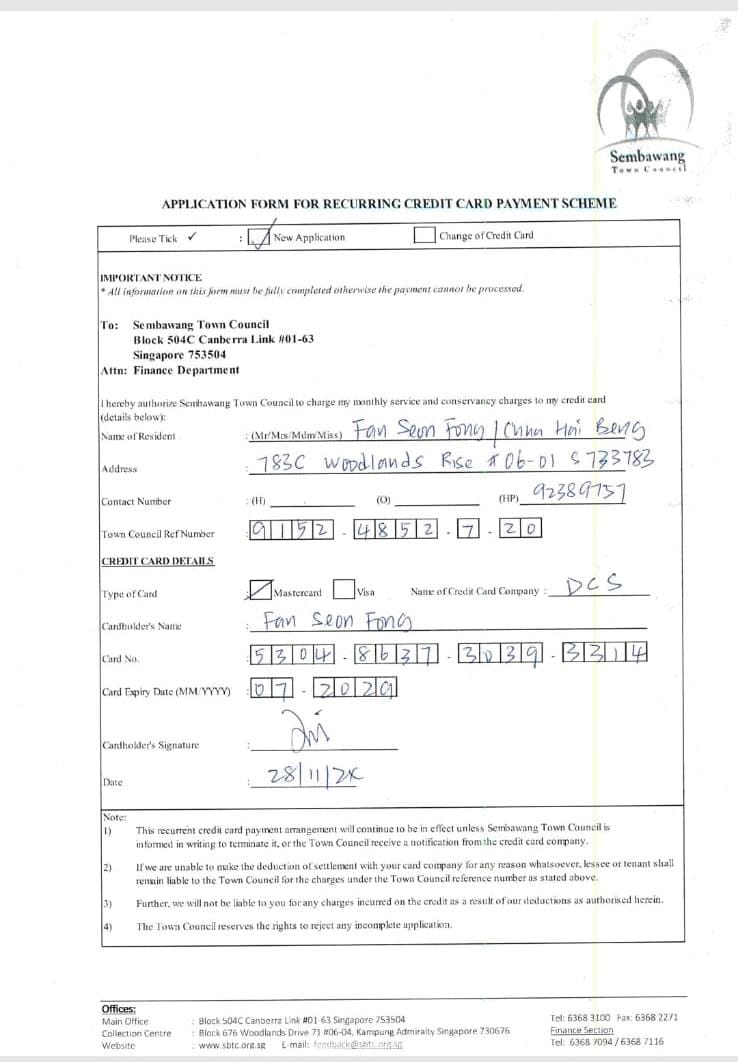 Sembawang
Town Council
APPLICATION FORM FOR RECURRING CREDIT CARD PAYMENT SCHEME
Please Tick ✓ : ✓ New Application Change of Credit Card
IMPORTANT NOTICE
* All information on this form must be fully completed otherwise the payment cannot be processed.
To: Sembawang Town Council
Block 504C Canberra Link #01-63
Singapore 753504
Attn: Finance Department
I hereby authorize Sembawang Town Council to charge my monthly service and conservancy charges to my credit card
(details below):
Name of Resident : (Mr/Mrs/Mdm/Miss) Fan Seon Fong / Chha Hai Beng
Address : 783C Woodlands Rise # 06-01 S 733783
Contact Number : (H) (O) (HP) 92389757
Town Council Ref Number : 9152 - 4852 - 7 - 20
CREDIT CARD DETAILS
Type of Card : Mastercard Visa Name of Credit Card Company : DCS
Cardholder's Name : Fan Seon Fong
Card No. : 5304 - 8637 - 3039 - 3314
Card Expiry Date (MM/YYYY) : 07 - 2029
Cardholder's Signature :
Date : 28/11/24
Note:
1) This recurrent credit card payment arrangement will continue to be in effect unless Sembawang Town Council is
informed in writing to terminate it, or the Town Council receive a notification from the credit card company.
2) If we are unable to make the deduction of settlement with your card company for any reason whatsoever, lessee or tenant shall
remain liable to the Town Council for the charges under the Town Council reference number as stated above.
3) Further, we will not be liable to you for any charges incurred on the credit as a result of our deductions as authorised herein.
4) The Town Council reserves the rights to reject any incomplete application.
Offices:
Main Office : Block 504C Canberra Link #01-63 Singapore 753504 Tel: 6368 3100 Fax: 6368 2271
Collection Centre : Block 676 Woodlands Drive 71 #06-04, Kampung Admiralty Singapore 730676 Finance Section
Website : www.sbtc.org.sg E-mail: feedback@sbtc.org.sg Tel: 6368 7094 / 6368 7116